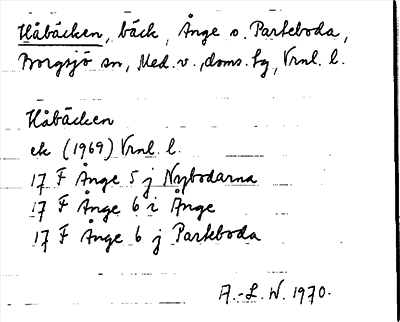 Håbäcken, bäck, Ånge o. Parteboda,
Borgsjö sn, Med. v., doms. tg, Vrnl. l.
Håbäcken
ek (1969) Vrnl. l.
17 F Ånge 5 j Nybodarna
17 F Ånge 6 i Ånge
17 F Ånge 6 j Parteboda
A.-L. W. 1970.